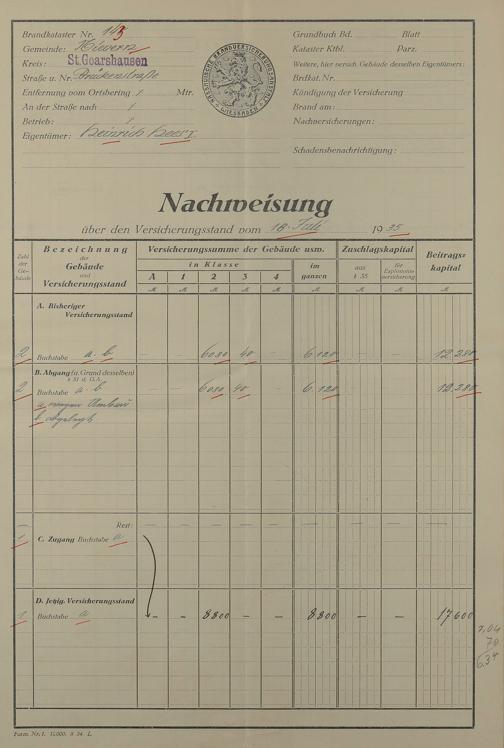 Brandkataster Nr. 143
Gemeinde:
Kreis: St. Goarshausen
Straße u. Nr. Brückenstraße
Entfernung vom Ortsbering / Mtr.
An der Straße nach /
Betrieb: /
Eigentümer: Heinrich
NASSAUISCHE BRANDVERSICHERUNGSANSTALT WIESBADEN
Grundbuch Bd. Blatt
Kataster Ktbl. Parz.
Weitere, hier versich. Gebäude desselben Eigentümers:
Brdkat. Nr.
Kündigung der Versicherung
Brand am:
Nachversicherungen:
Schadensbenachrichtigung:
Nachweisung
über den Versicherungsstand vom 18. Juli 1935
Zahl der Gebäude
Bezeichnung der Gebäude und Versicherungsstand
Versicherungssumme der Gebäude usw.
Zuschlagskapital
Beitragskapital
in Klasse
im ganzen
aus § 35
für Explosionsversicherung
A 1 2 3 4
M M M M M M M M M
A. Bisheriger
Versicherungsstand
2 Buchstabe a. b. – – 6080 40 – 6 120 – – 12 280
B. Abgang (u. Grund desselben)
2 Buchstabe a. b. 6080 40 6 120 12 280
a wegen Umbau
b abgelegt
– Rest: – – – – – – – – –
1 C. Zugang Buchstabe a
D. Jetzig. Versicherungsstand
1 Buchstabe a – – 8800 – – 8800 – – 17600
7,04
70
6,34
Form. Nr. 1. 8 34 L.